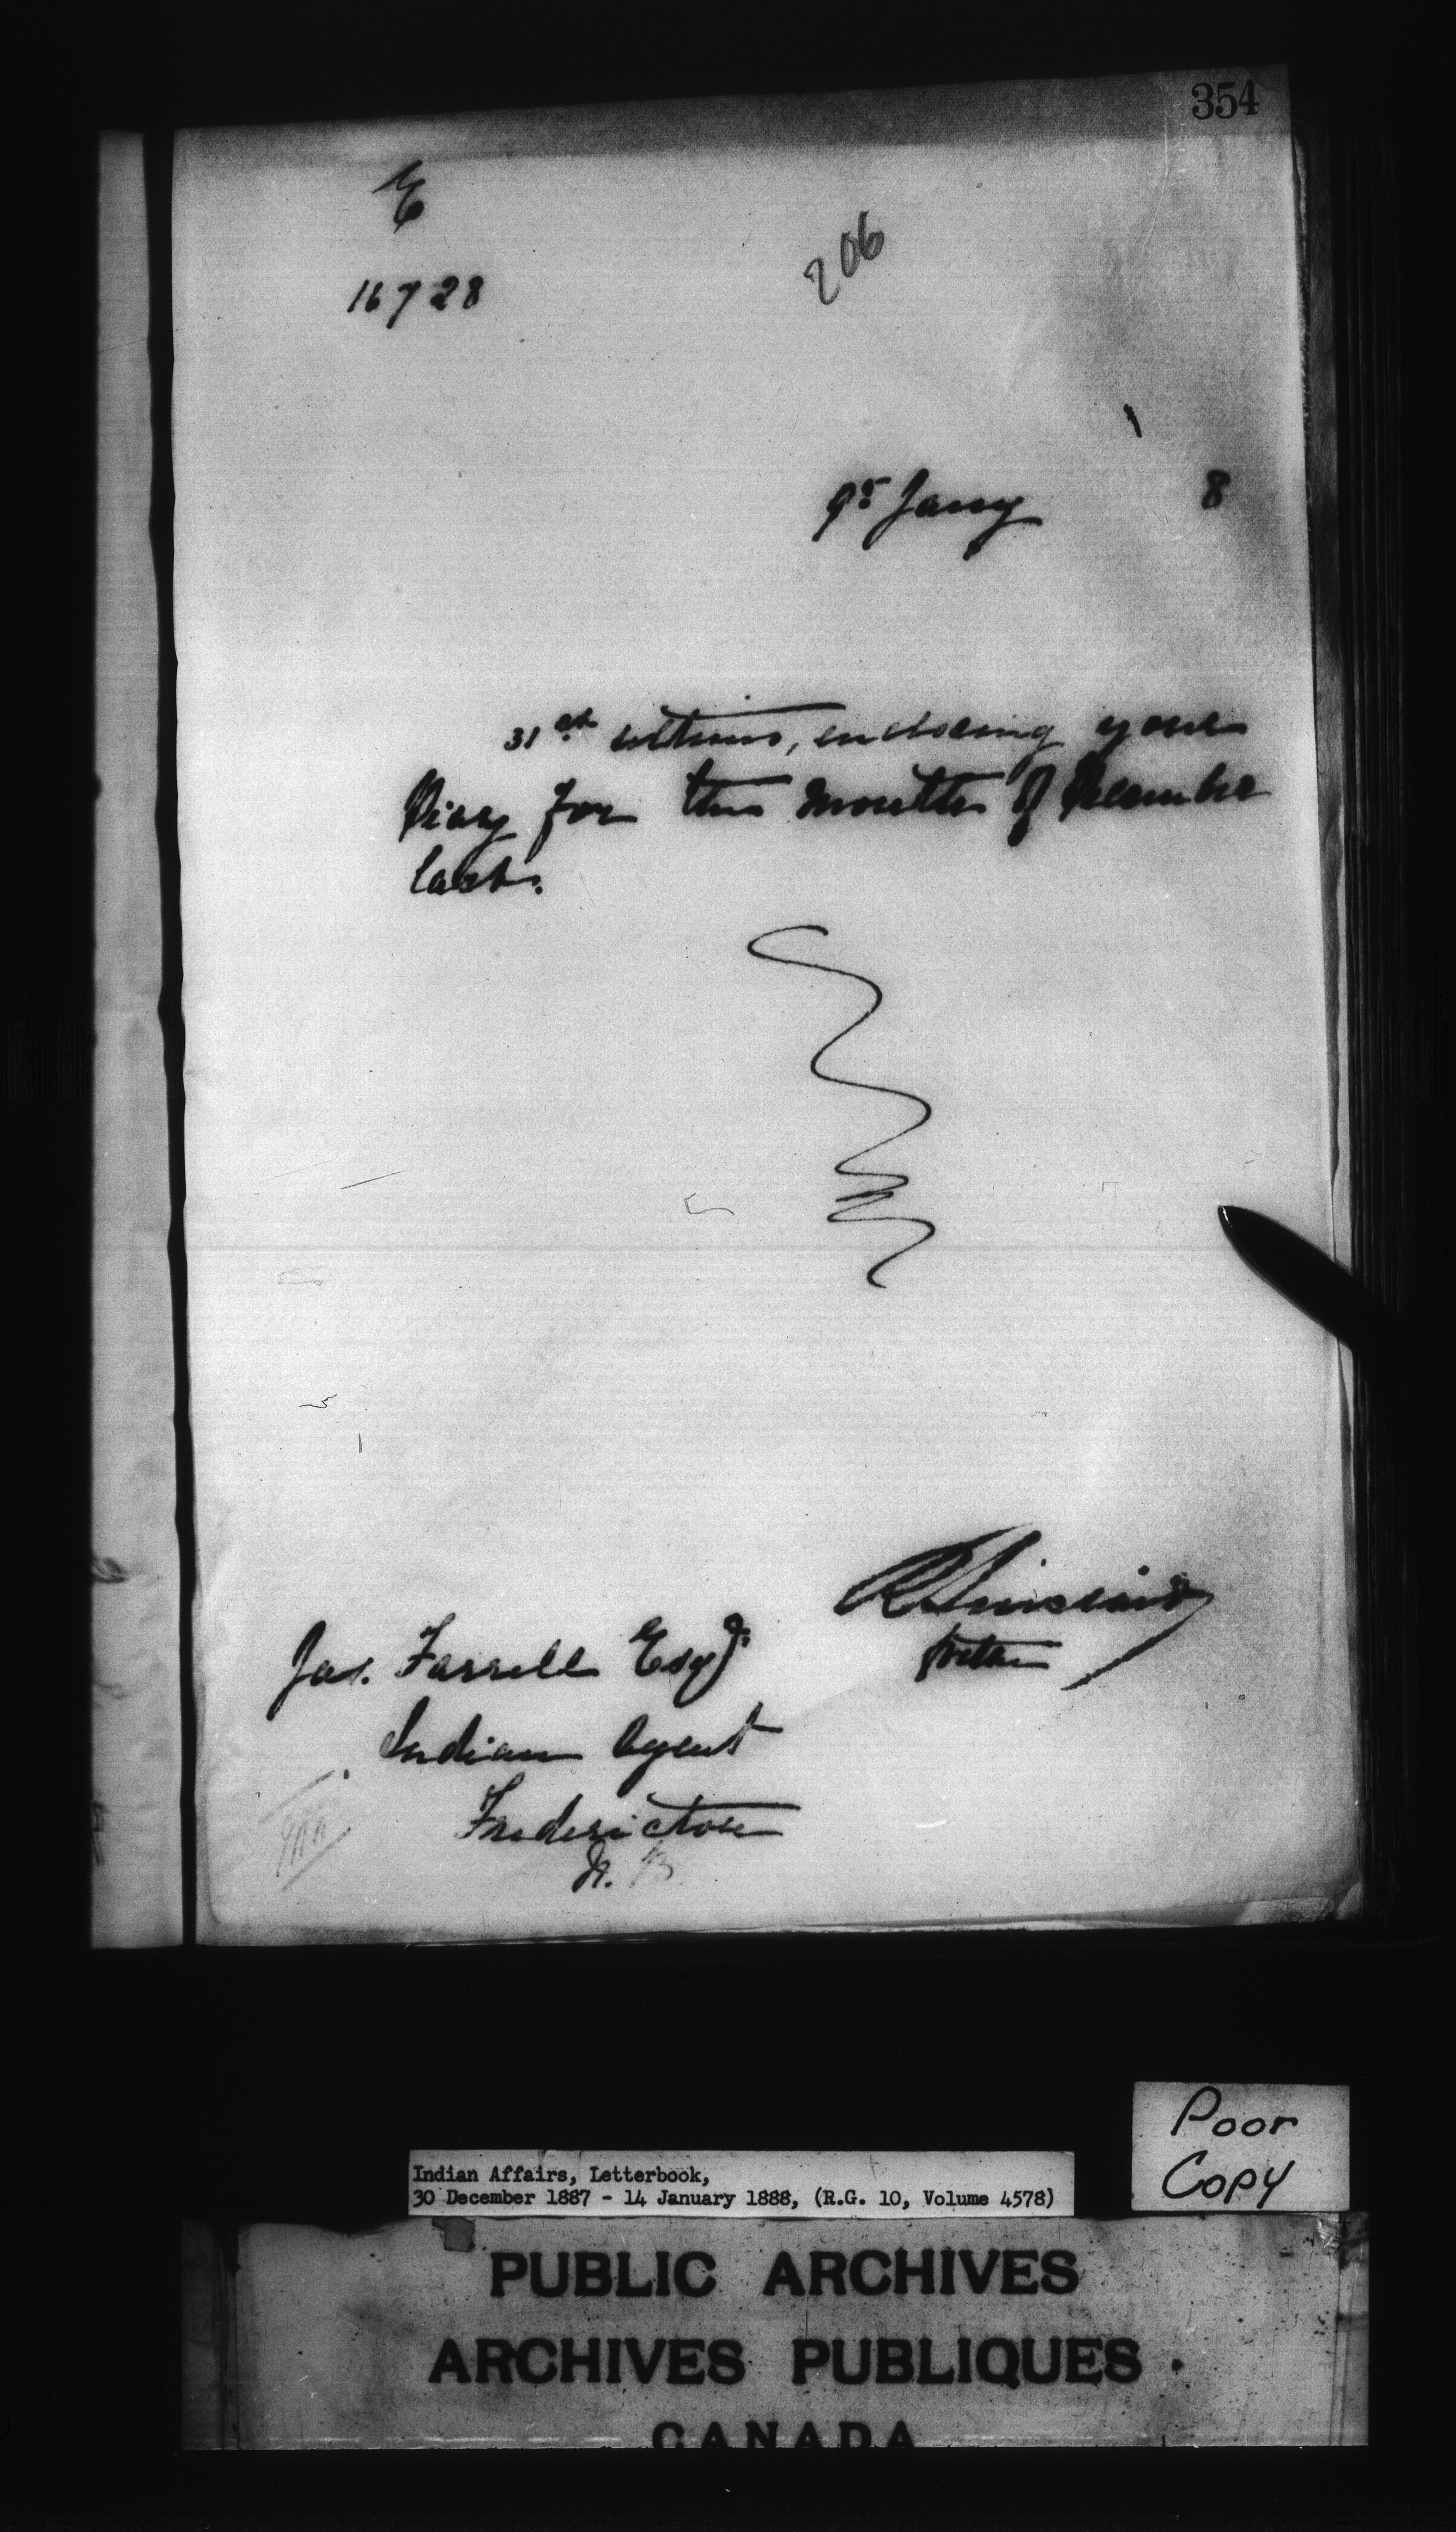 354
E
206
16728
9th Jany 8
31st ultimo, enclosing your
Diary for the month of December
last.
R Sinclair
Jas. Farrell Esqr.
Indian Agent
Fredericton
N. B.
Poor
Copy
Indian Affairs, Letterbook,
30 December 1887 - 14 January 1888, (R.G. 10, Volume 4578)
PUBLIC ARCHIVES
ARCHIVES PUBLIQUES
CANADA